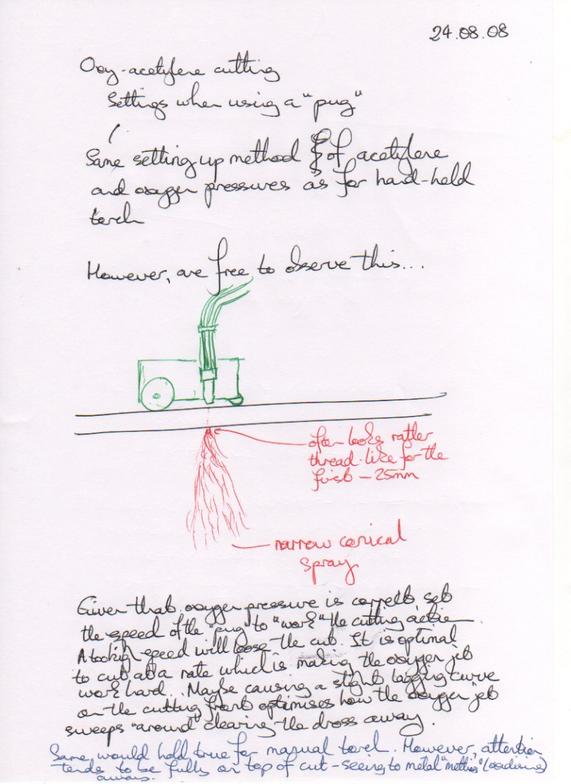 24.08.08
Oxy-acetylene cutting
Settings when using a "pug"
Same setting up method of acetylene
and oxygen pressures as for hand-held
torch
However, are free to observe this...
often looks rather
thread-like for the
first ~25mm
narrow conical
spray
Given that oxygen pressure is correct, set
the speed of the "pug" to "work" the cutting action.
A too high speed will loose the cut. It is optimal
to cut at a rate which is making the oxygen jet
work hard. Maybe causing a slight lagging curve
on the cutting front optimises how the oxygen jet
sweeps "around" clearing the dross away.
Same would hold true for manual torch. However, attention
tends to be fully on top of cut - seeing to metal